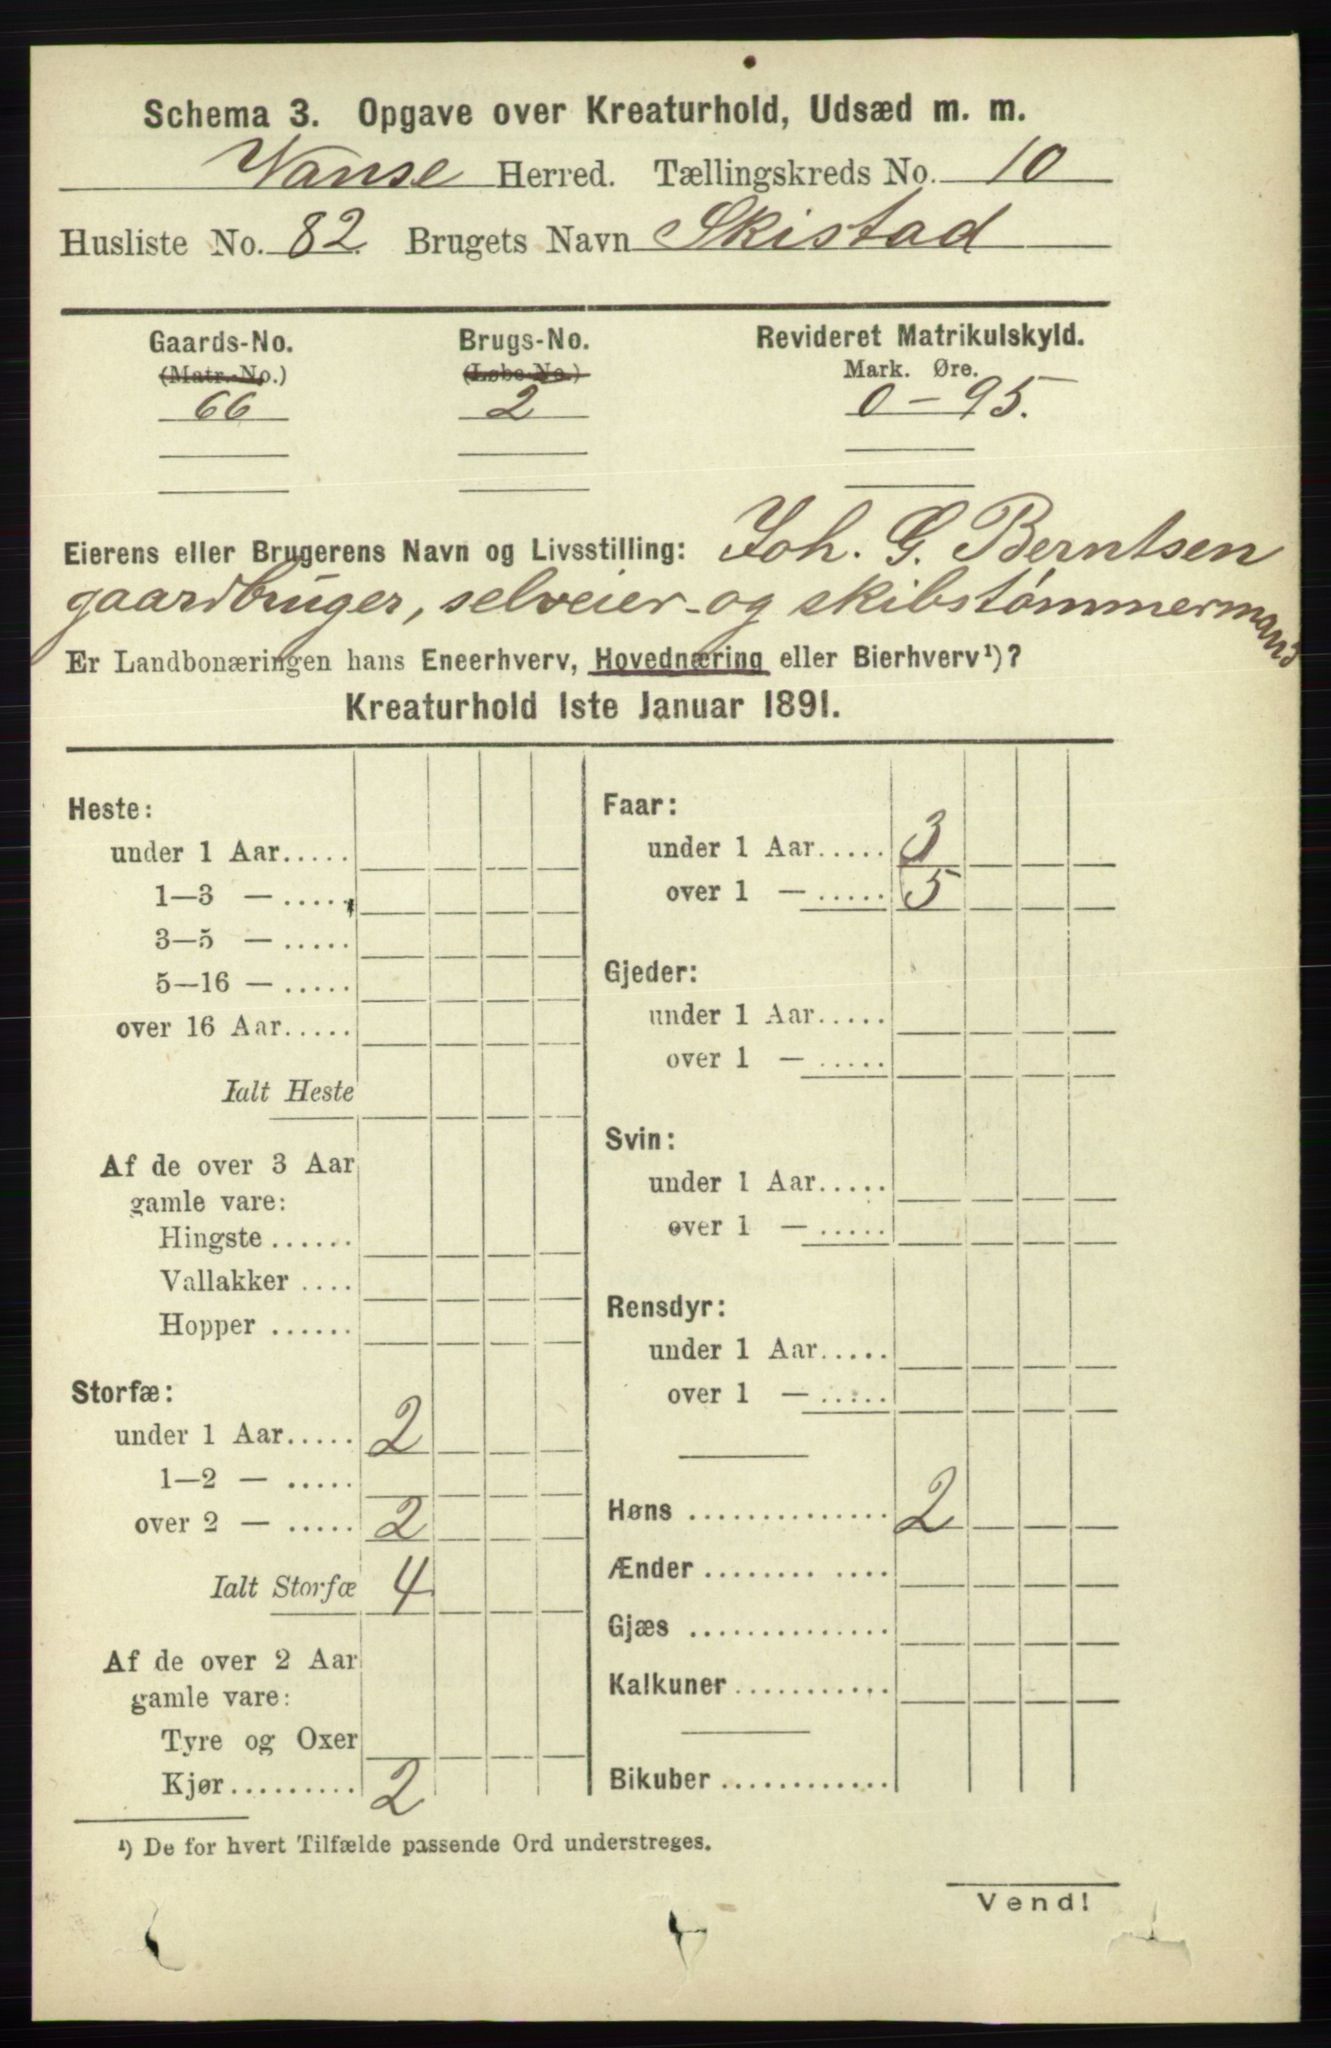 Schema 3. Opgave over Kreaturhold, Udsæd m. m.
Vanse Herred. Tællingskreds No. 10
Husliste No. 82. Brugets Navn Skistad
Gaards-No. Brugs-No. Revideret Matrikulskyld.
(Matr.-No.) (Løbe-No.) Mark. Øre.
66 2 0-95.
Eierens eller Brugerens Navn og Livsstilling: Joh. G. Berntsen
gaardbruger, selveier og skibstømmermand
Er Landbonæringen hans Eneerhverv, Hovednæring eller Bierhverv¹)?
Kreaturhold 1ste Januar 1891.
Heste:
under 1 Aar.....
1—3 — .....
3—5 — .....
5—16 — .....
over 16 Aar.....
Ialt Heste
Af de over 3 Aar
gamle vare:
Hingste ......
Vallakker ....
Hopper ......
Storfæ:
under 1 Aar..... 2
1—2 — .....
over 2 — ..... 2
Ialt Storfæ 4
Af de over 2 Aar
gamle vare:
Tyre og Oxer
Kjør......... 2
Faar:
under 1 Aar..... 3
over 1 — ..... 5
Gjeder:
under 1 Aar.....
over 1 — .....
Svin:
under 1 Aar.....
over 1 — .....
Rensdyr:
under 1 Aar.....
over 1 — .....
Høns .............. 2
Ænder ........ ....
Gjæs ..............
Kalkuner...........
Bikuber ............
¹) De for hvert Tilfælde passende Ord understreges.
Vend!